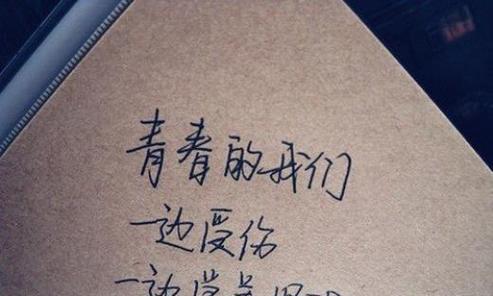 青春的我们
一边受伤
一边学着